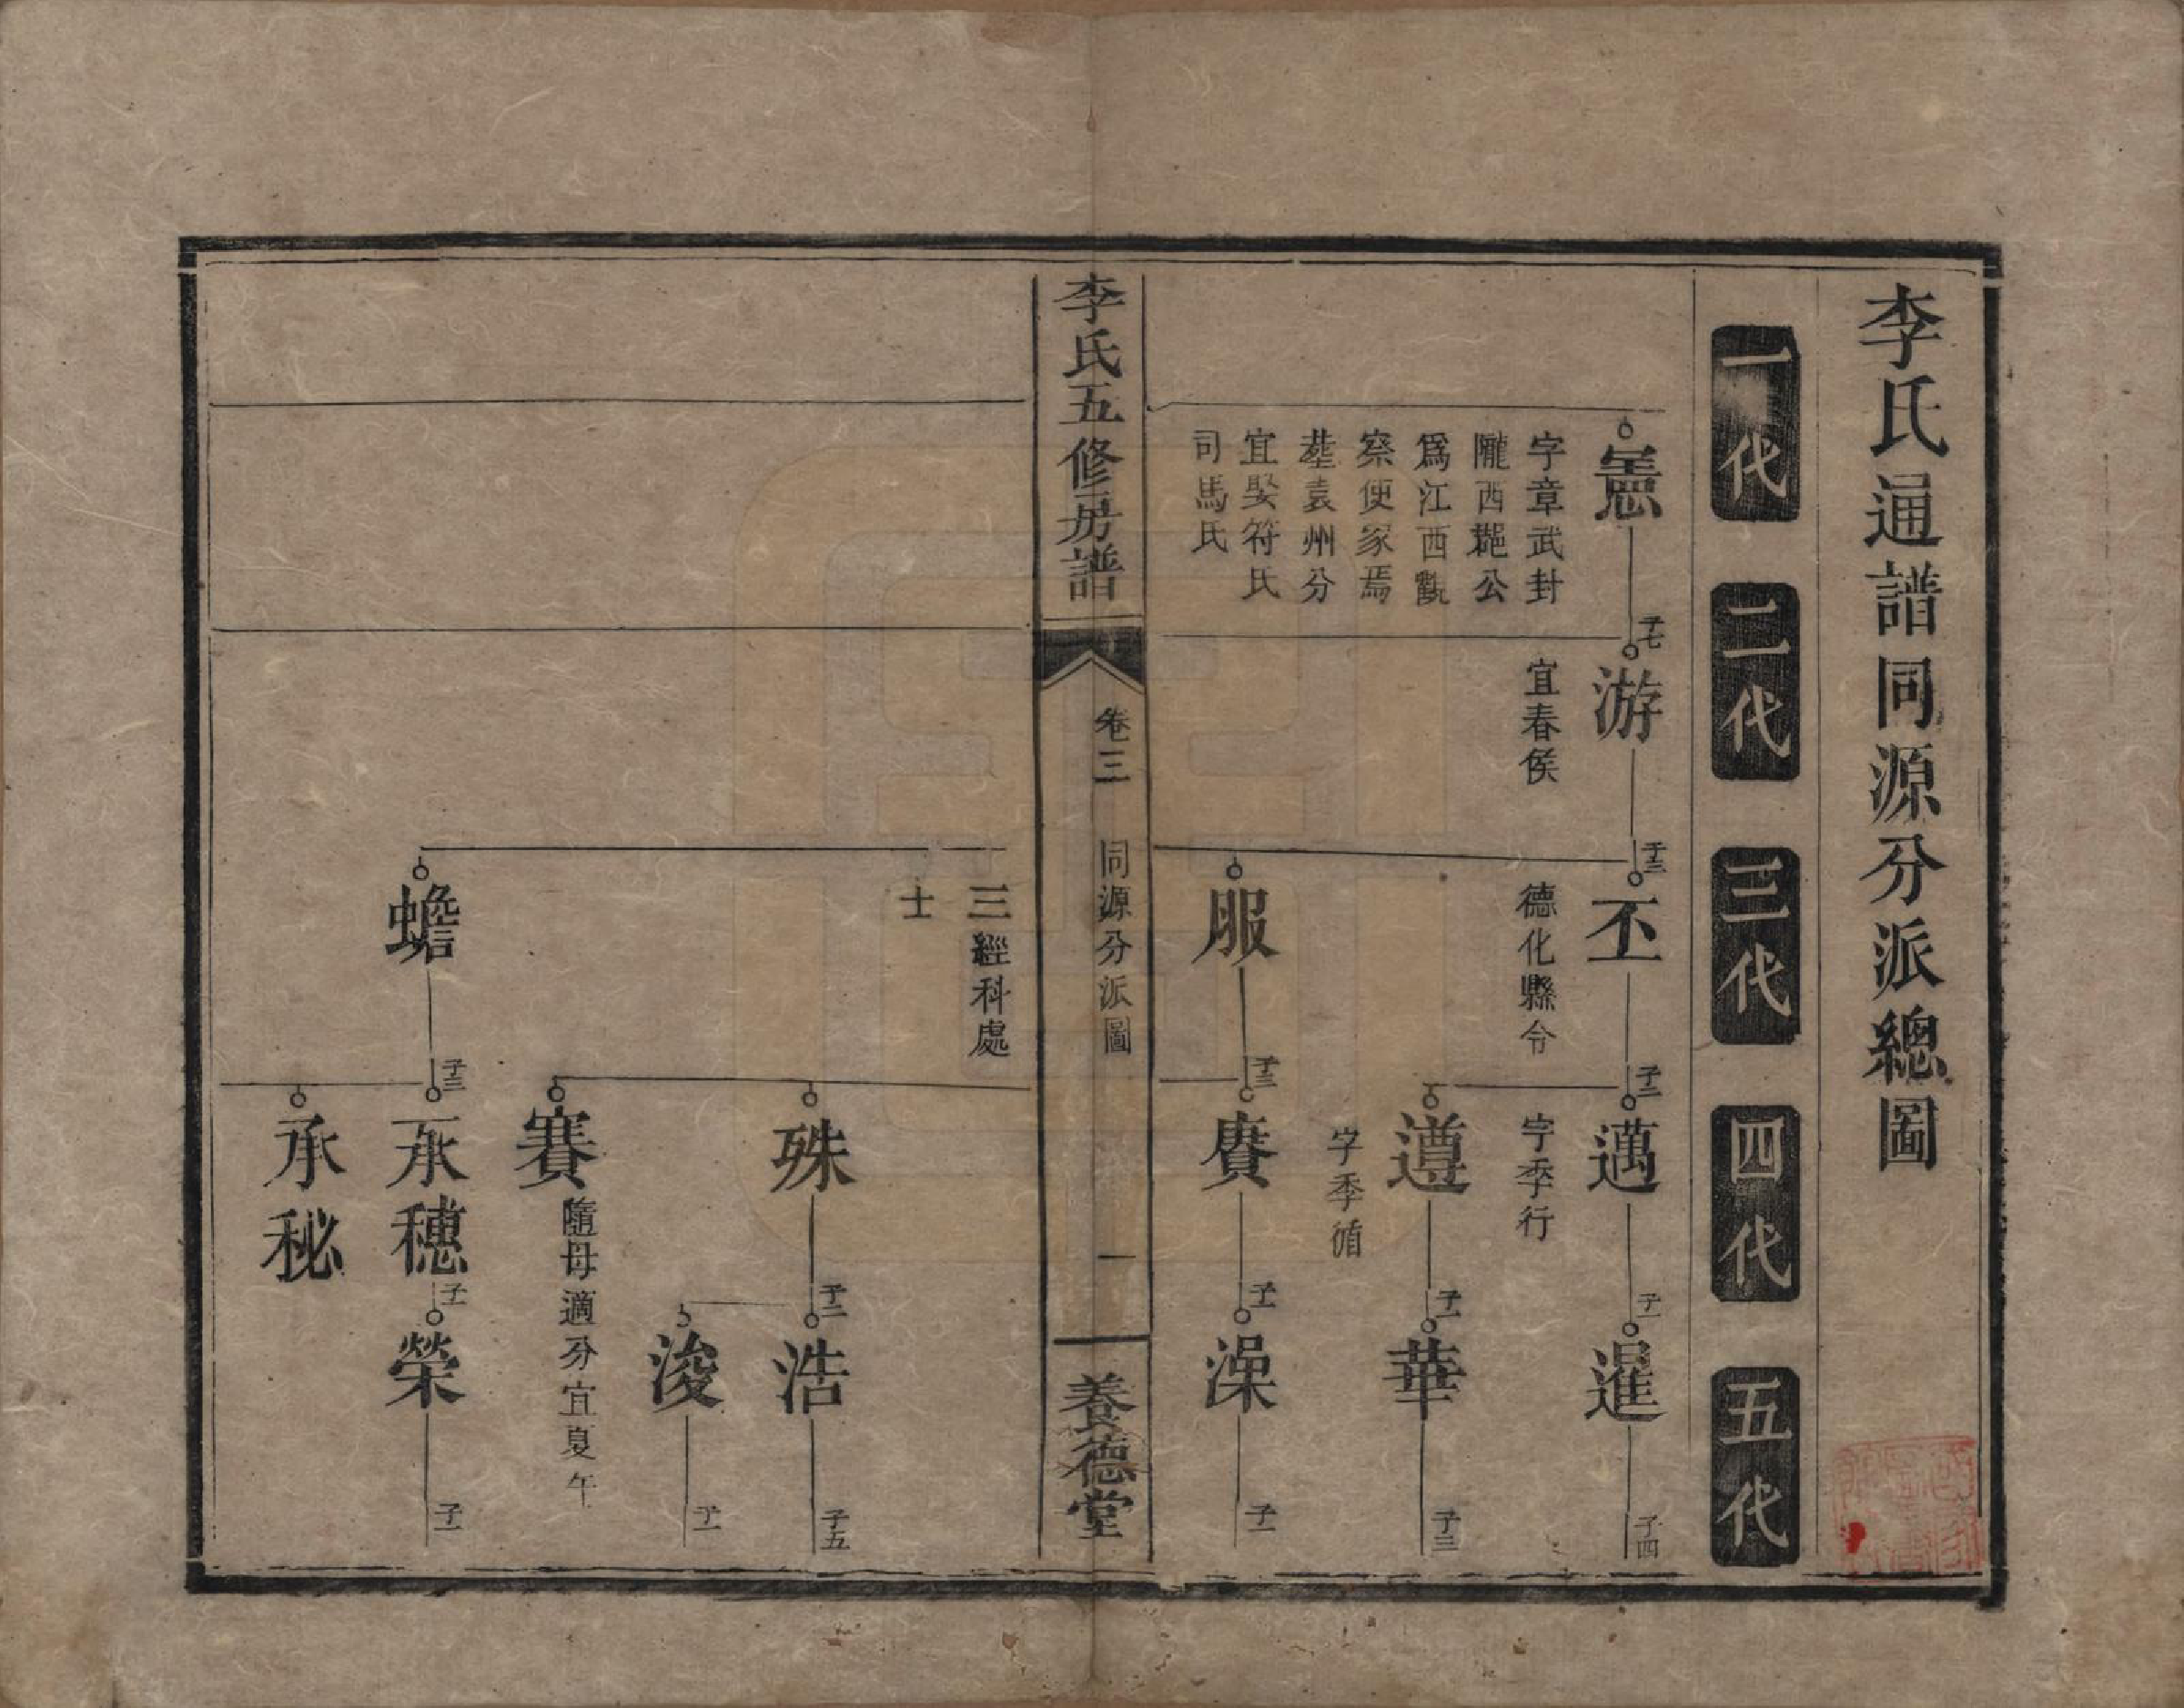 李氏通譜同源分派總圖
一代
二代
三代
四代
五代
憲
字章武封
隴西郡公
爲江西觀
察使家焉
塟袁州分
宜娶符氏
司馬氏
子七
游
宜春侯
子三
丕
德化縣令
子二
邁
字季行
子一
暹
子四
遵
字季循
子一
華
子三
服
子三
賡
子一
澡
子一
李氏五修房譜
卷三
同源分派圖
一
養德堂
三經科處
士
殊
子二
浩
子五
浚
子一
賽
隨母適分宜夏午
蟾
子二
承穗
子一
榮
子一
承秘